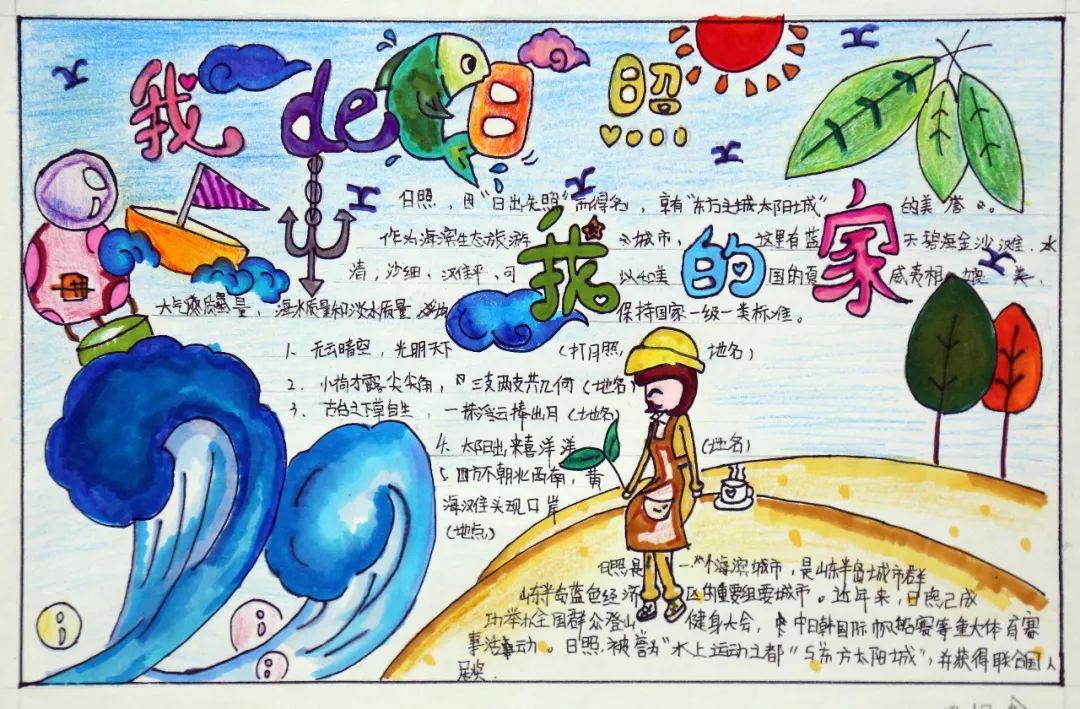 我de日照
我的家
日照，因“日出先照”而得名，享有“东方之城太阳城”的美誉。
作为海滨生态旅游城市，这里有蓝天碧海金沙滩，水
清，沙细，滩平，可以和美国的夏威夷相媲美，
大气质量，海水质量和淡水质量保持国家一级一类标准。
1、无云晴空，光明天下（打日照，地名）
2、小荷才露尖尖角，三支两支共几何（地名）
3、古台之下草自生，一株浮云捧出月（地名）
4、太阳出来喜洋洋（地名）
5、四方不朝北西南，黄
海滩佳头现口岸
（地点）
日照是一个海滨城市，是山东半岛城市群
山东半岛蓝色经济区的重要组要城市。近年来，日照已成
功举办全国群众登山健身大会，中日韩国际帆船赛等重大体育赛
事活动。日照被誉为“水上运动之都”与东方太阳城”，并获得联合国人
居奖.